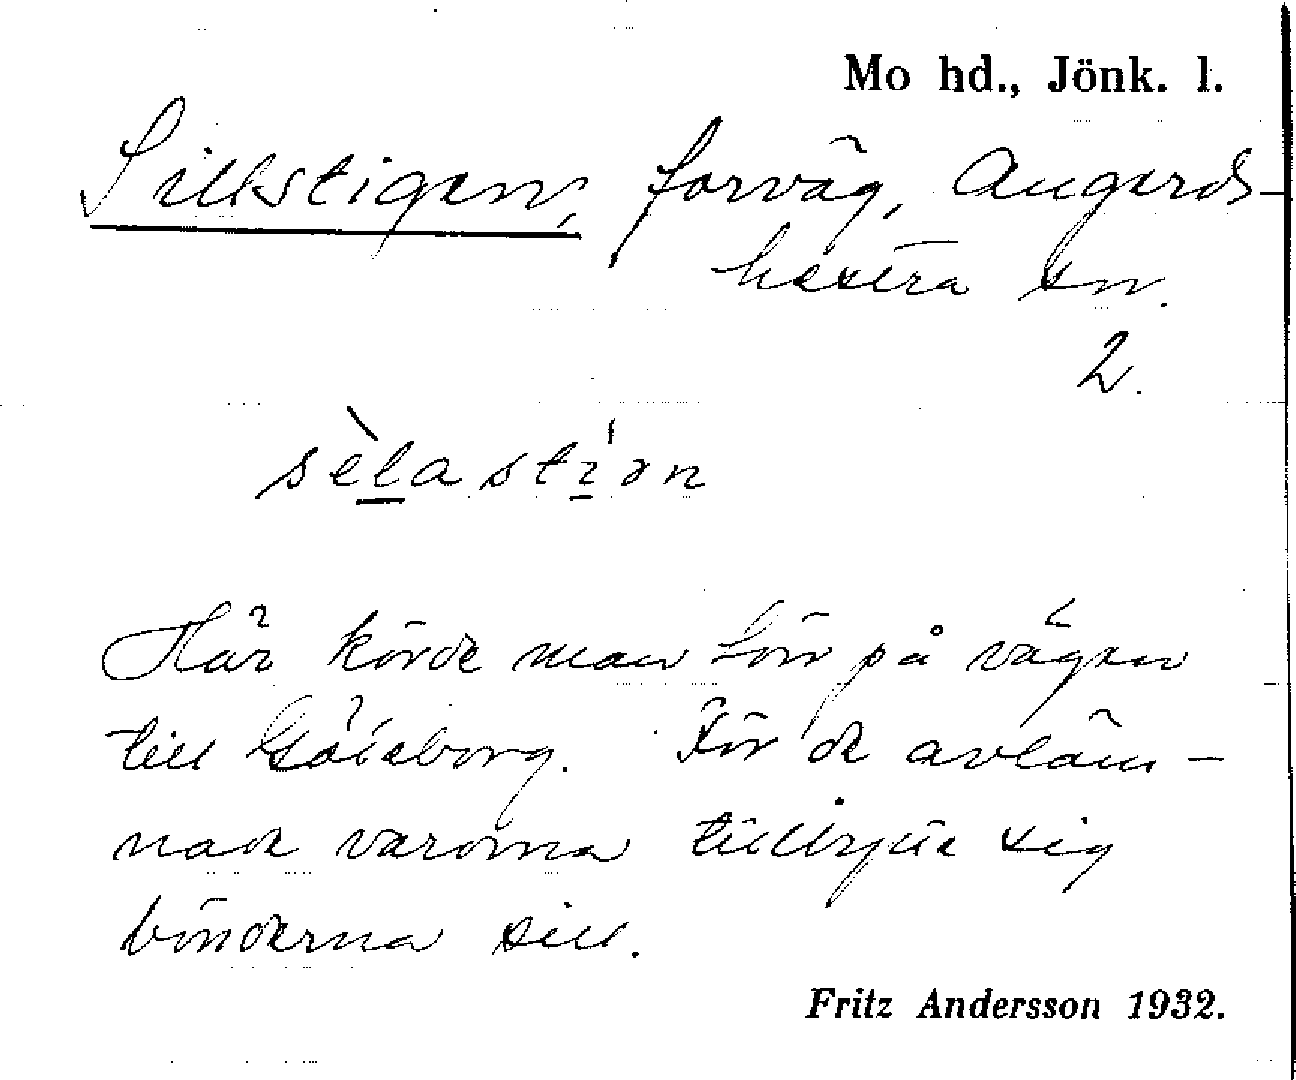 Mo hd., Jönk. l.
Sillstigen, forväg, Angerds-
hestra sn.
2.
sèlastíən
Här körde man förr på vägen
till Göteborg. För de avläm-
nade varorna tillbytte sig
bönderna sill.
Fritz Andersson 1932.